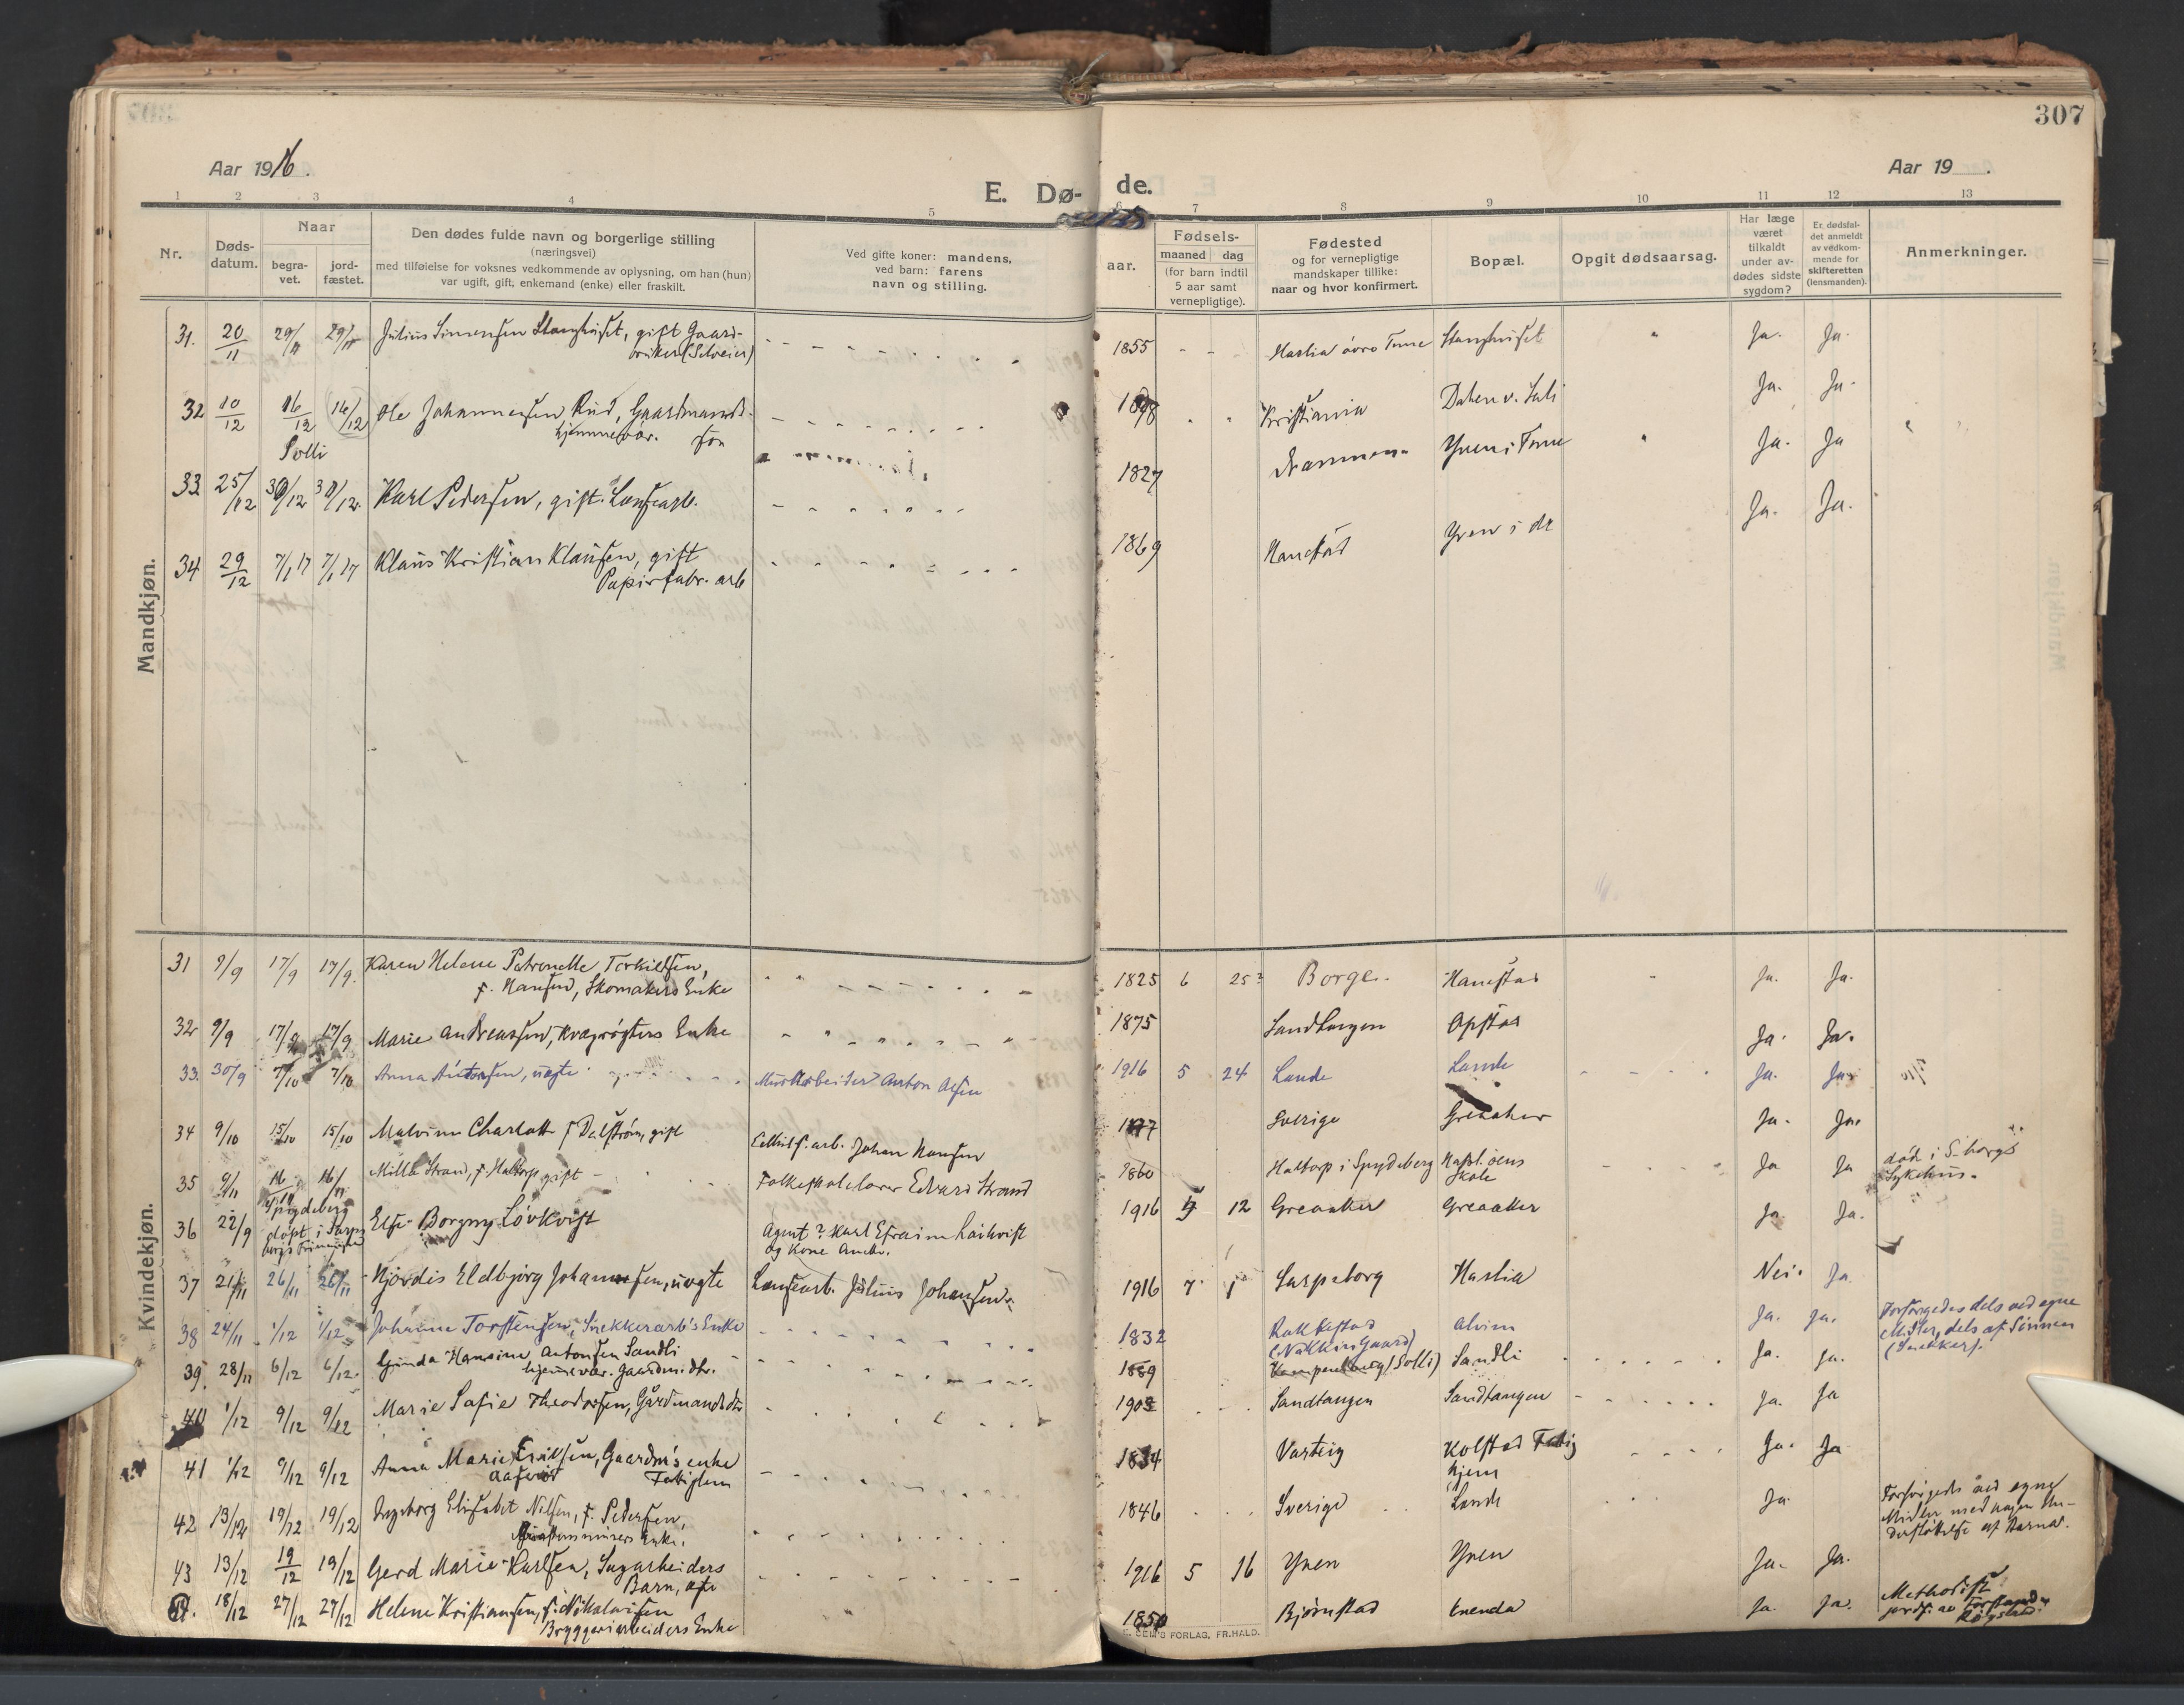 307
Aar 1916.
Aar 19
E. Dø-
de.
1 2 3 4 5 6 7 8 9 10 11 12 13
Nr.
Døds-
datum.
Naar
begra-
vet.
jord-
fæstet.
Den dødes fulde navn og borgerlige stilling
(næringsvei)
med tilføielse for voksnes vedkommende av oplysning, om han (hun)
var ugift, gift, enkemand (enke) eller fraskilt.
Ved gifte koner: mandens,
ved barn: farens
navn og stilling.
aar.
Fødsels-
maaned dag
(for barn indtil
5 aar samt
vernepligtige).
Fødested
og for vernepligtige
mandskaper tillike:
naar og hvor konfirmert.
Bopæl.
Opgit dødsaarsag.
Har læge
været
tilkaldt
under av-
dødes sidste
sygdom?
Er dødsfal-
det anmeldt
av vedkom-
mende for
skifteretten
(lensmanden).
Anmerkninger.
Mandkjøn.
31. 20/11 29/11 29/11 Julius Simensen Stanghuset, gift Gaard-
bruker (Selveier)
1855 Haslia øvre Tune Stanghuset Ja. Ja.
32 10/12 16/12 16/12 Ole Johannesen Rud, Gaardmands-
Solli hjemmevær. søn
1898 Kristiania Dalen v. Ja. Ja.
33 25/12 30/12 30/12 Karl Pedersen, gift. Løusearb.
1827 Drammen Yven i Tune Ja. Ja
34 29/12 7/1 17 7/1 17 Klaus Kristian Klausen, gift
Papirfabr. arb
1869 Hanestad Yven i do Ja. Ja.
Kvindekjøn.
31 9/9 17/9 17/9. Karen Helene Petronelle Torkielsen,
f. Hansen, Skomakers Enke
1825 6 25? Borge. Hanestad Ja. Ja.
32 9/9 17/9 17/9 Marie Andreassen, Kvægrøgters Enke
1875 Sandtangen Opstad Ja. Ja.
33. 30/9 7/10 7/10 Anna Antonsen, uægte Murarbeider Anton Olsen
1916 5 24 Lande Lande Ja. Ja.
34 9/10 15/10 15/10 Malvina Charlott f Dalstrøm, gift
Cellulf. arb. Johan Hansen
1877 Sverige Greaaker Ja. Ja.
35 9/11 16/11 16/11 Milla Strand, f. Haltorp gift
Spydeberg
Folkeskolelærer Edvard Strand
1860 Haltorp i Spydeberg Hafsl.øens
Skole
Ja Ja død i S-borgs
Sykehus.
36 22/9 døpt i Sarps-
borgs Frimenighed
Else Borgny Løvkvist
Agent? Karl Efraim Løvkvist
og Kone
1916 12 Greaaker Greaaker Ja. Ja.
37 21/11 26/11 26/11 Hjørdis Eldbjørg Johannesen, uægte Løusearb. Julius Johansen.
1916 7 1 Sarpsborg Haslia Nei. Ja.
38 24/11 1/12 1/12 Johanne Torstensen, Snekkerarb's Enke
1832 Rakkestad
(Nakkim Gaard)
Alvim Ja. Ja. Forsørgedes dels ved egne
Midler, dels af Sønnen
(Snekker).
39. 28/11 6/12 6/12. Gunda Hansine Antonsen Sandli
hjemmevær. Gaardm. dtr.
1889 (Solli) Sandli Ja. Ja.
40 1/12 9/12 9/12 Marie Sofie Theodorsen, Gårdmands dtr
1903 Sandtangen Sandtangen Ja. Ja
41 1/12 9/12 9/12 Anna Marie Eriksen, Gaardm's enke
Fattiglem
1834 Varteig Kolstad Fattig
hjem
Ja. Ja
42 13/12 19/12 19/12 Ingeborg Elisabet Nilsen, f. Pedersen,
Enke.
1846 Sverige Lande Ja. Forsørgedes ved egne
Midler med nogen Un-
derstøttelse af Barna.
43 13/12 19/12 19/12 Gerd Marie Karlsen, Sagarbeiders
Barn, ægte
1916 5 16 Yven Yven Ja. Ja.
18/12 27/12 27/12 Helene Kristiansen, f. Nikolaisen
Bryggeriarbeiders Enke
1850 Bjørnstad Enenda Ja. Ja. Methodist
jordf. av Forstander
E. SEM'S FORLAG, FR.HALD.